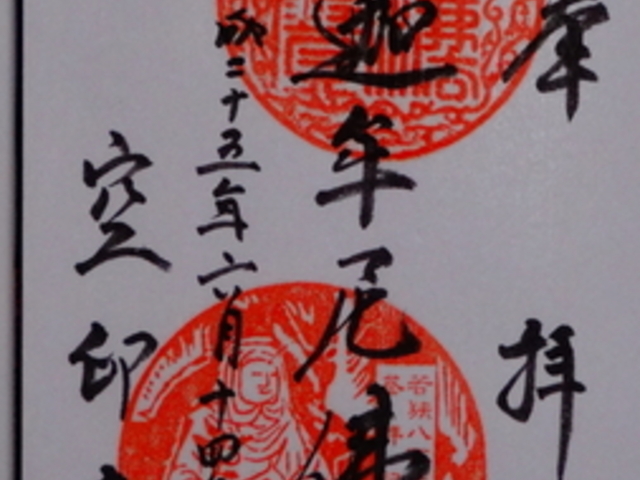 奉拝
迦牟尼佛
成二十五年六月十四
空印
若狭八